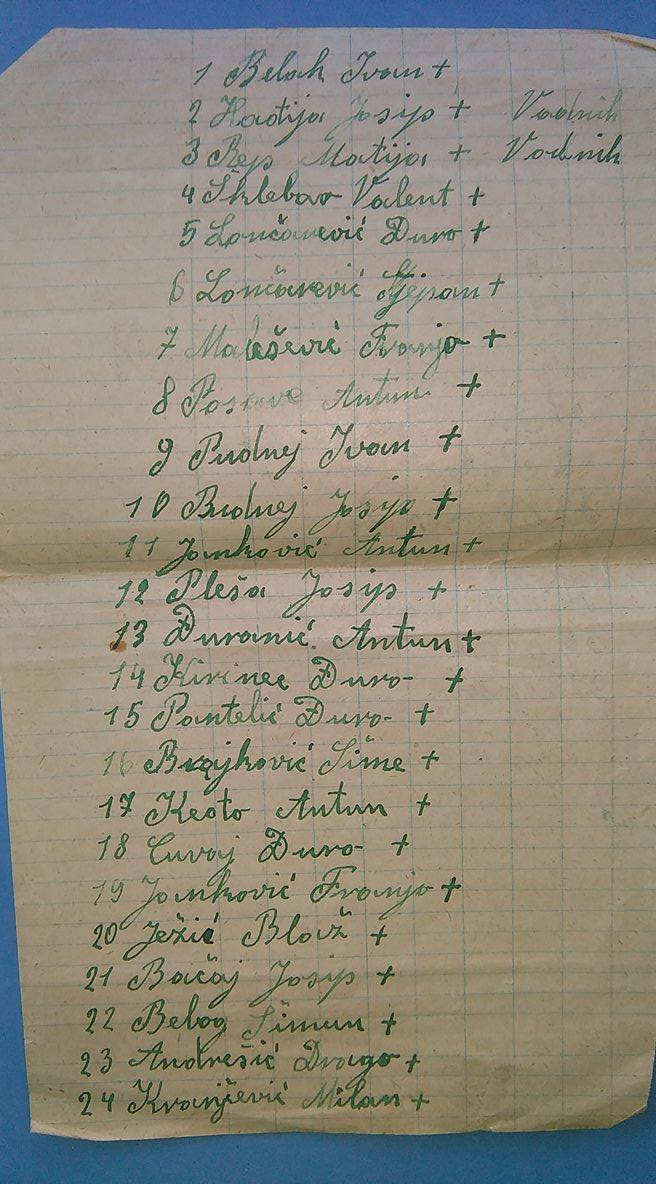 1 Belak Ivan +
2 Hatija Josip + Vodnik
3 Rep Matija + Vodnik
4 Šklebar Valent +
5 Lončarević Đuro +
6 Lončarević Stjepan +
7 Malešević Franjo +
8 Antun +
9 Pudnej Ivan +
10 Budnej Josip +
11 Janković Antun +
12 Pleša Josip +
13 Đuranić Antun +
14 Kirinec Đuro +
15 Pantelić Đuro +
16 Brajković Šime +
17 Antun +
18 Cuvaj Đuro +
19 Janković Franjo +
20 Ježić Blaž +
21 Bačaj Josip +
22 Bebog Šimun +
23 Andrešić Drago +
24 Kranjčević Milan +